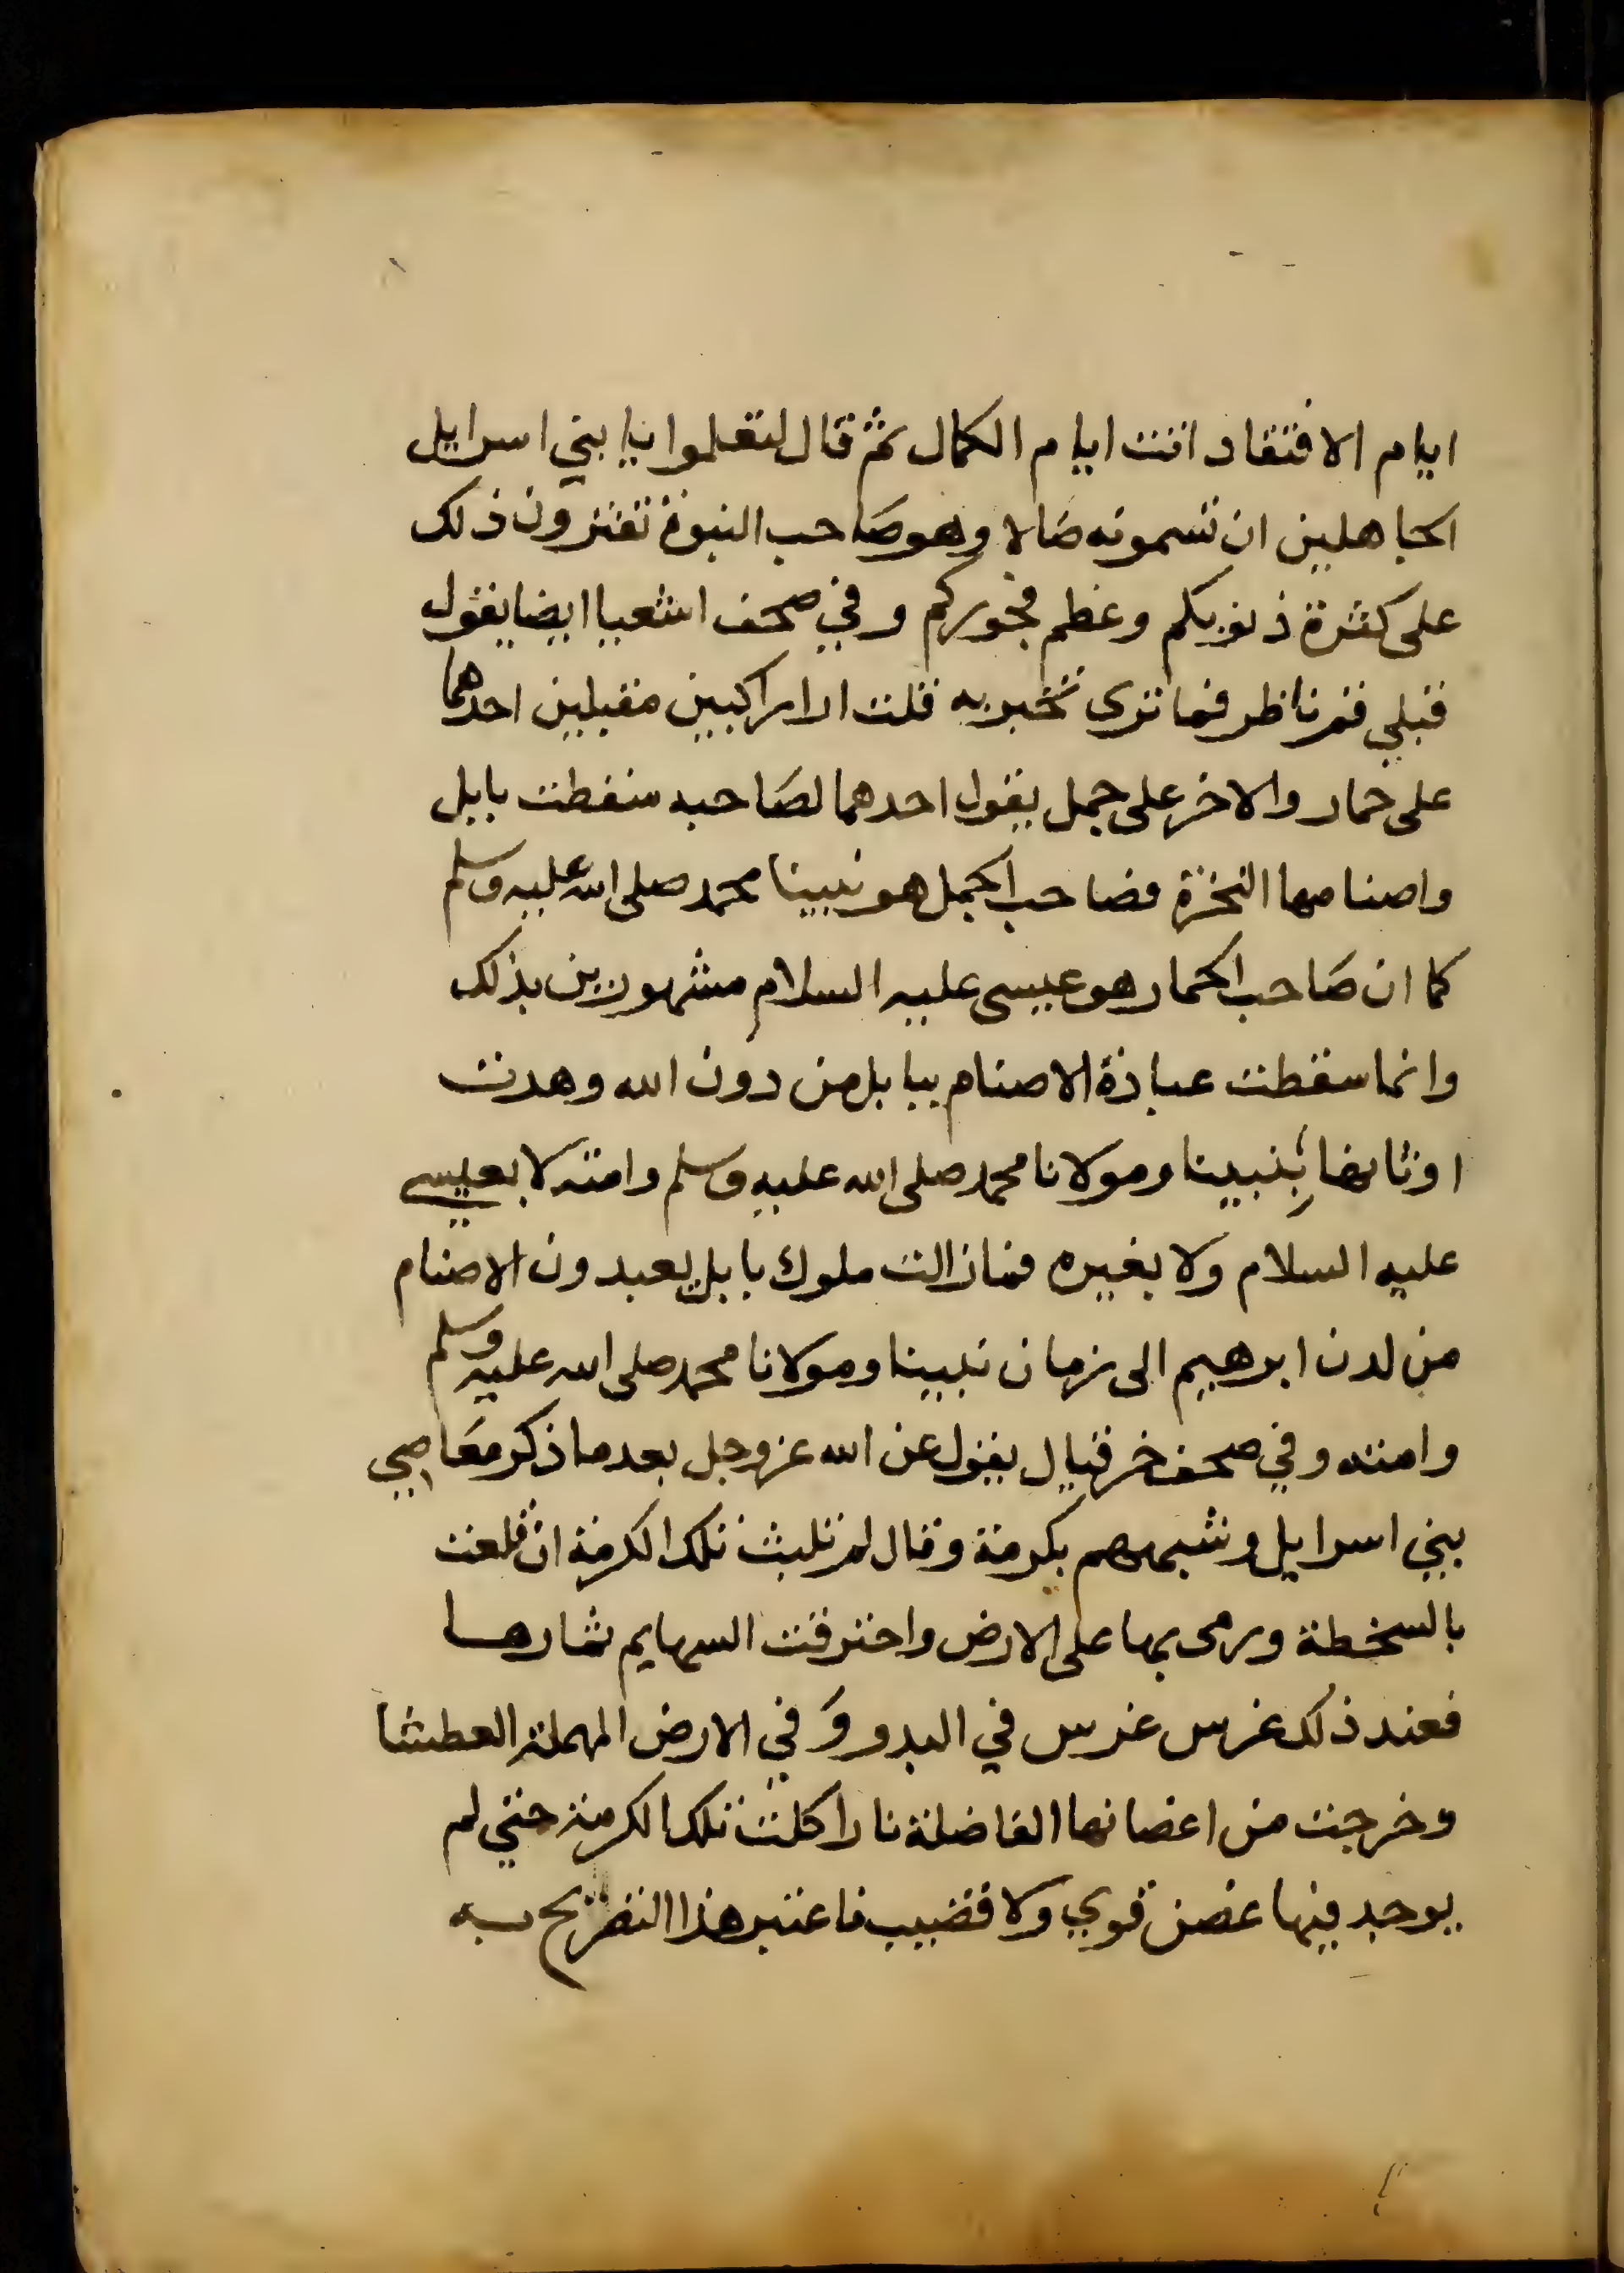 ايام الافتقاد اتت ايام الكمال ثم قال لتعلموا يا بني اسرايل
الجاهلين ان تسمونه ضالا وهو صاحب النبوة تفترون ذلك
على كثرة ذنوبكم وعظم فجوركم وفي صحف اشعيا ايضا يقول
قبلي قم ناظر فما ترى تخبر به قلت ارا راكبين مقبلين احدهما
على حمار والاخر على جمل يقول احدهما لصاحبه سقطت بابل
واصنامها النخرة فصاحب الجمل هو نبينا محمد صلى الله عليه وسلم
كما ان صاحب الحمار هو عيسى عليه السلام مشهورين بذلك
وانما سقطت عبادة الاصنام ببابل من دون الله وهدت
اوثانها بنبينا ومولانا محمد صلى الله عليه وسلم وامته لا بعيسى
عليه السلام ولا بغيره فما زالت ملوك بابل يعبدون الاصنام
من لدن ابرهيم الى زمان نبينا ومولانا محمد صلى الله عليه وسلم
وامته وفي صحف خرقيال يقول عن الله عز وجل بعد ما ذكر معاصي
بني اسرايل وشبههم بكرمة وقال لم تلبث تلك الكرمة ان قلعت
بالسخطة ورمى بها على الارض واحترقت السهايم ثمارها
فعند ذلك غرس غرس في البدو وفي الارض المهملة العطشا
وخرجت من اغصانها الفاضلة نارا كلت تلك الكرمة حتي لم
يوجد فيها غصن قوي ولا قضيب فاعتبر هذا التصريح به